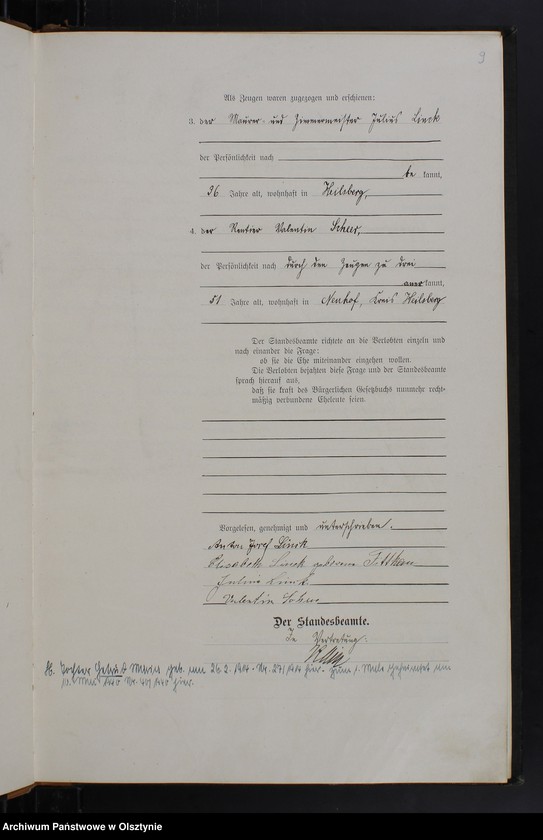 9
Als Zeugen waren zugezogen und erschienen:
3. der Maurer- und Zimmermeister Julius Linck
der Persönlichkeit nach
be kannt,
36 Jahre alt, wohnhaft in Heilsberg,
4. der Rentier Valentin Scheer,
der Persönlichkeit nach durch den Zeugen zu drei
aner kannt,
51 Jahre alt, wohnhaft in Neuhof, Kreis Heilsberg
Der Standesbeamte richtete an die Verlobten einzeln und
nach einander die Frage:
ob sie die Ehe miteinander eingehen wollen.
Die Verlobten bejahten diese Frage und der Standesbeamte
sprach hierauf aus,
daß sie kraft des Bürgerlichen Gesetzbuchs nunmehr recht-
mäßig verbundene Eheleute seien.
Vorgelesen, genehmigt und unterschrieben.
Josef Linck
Elisabeth Linck geborene
Julius Linck
Valentin
Der Standesbeamte.
In Vertretung:
Tochter Marie geb. am 26.2. hier.
hier.
Archiwum Państwowe w Olsztynie